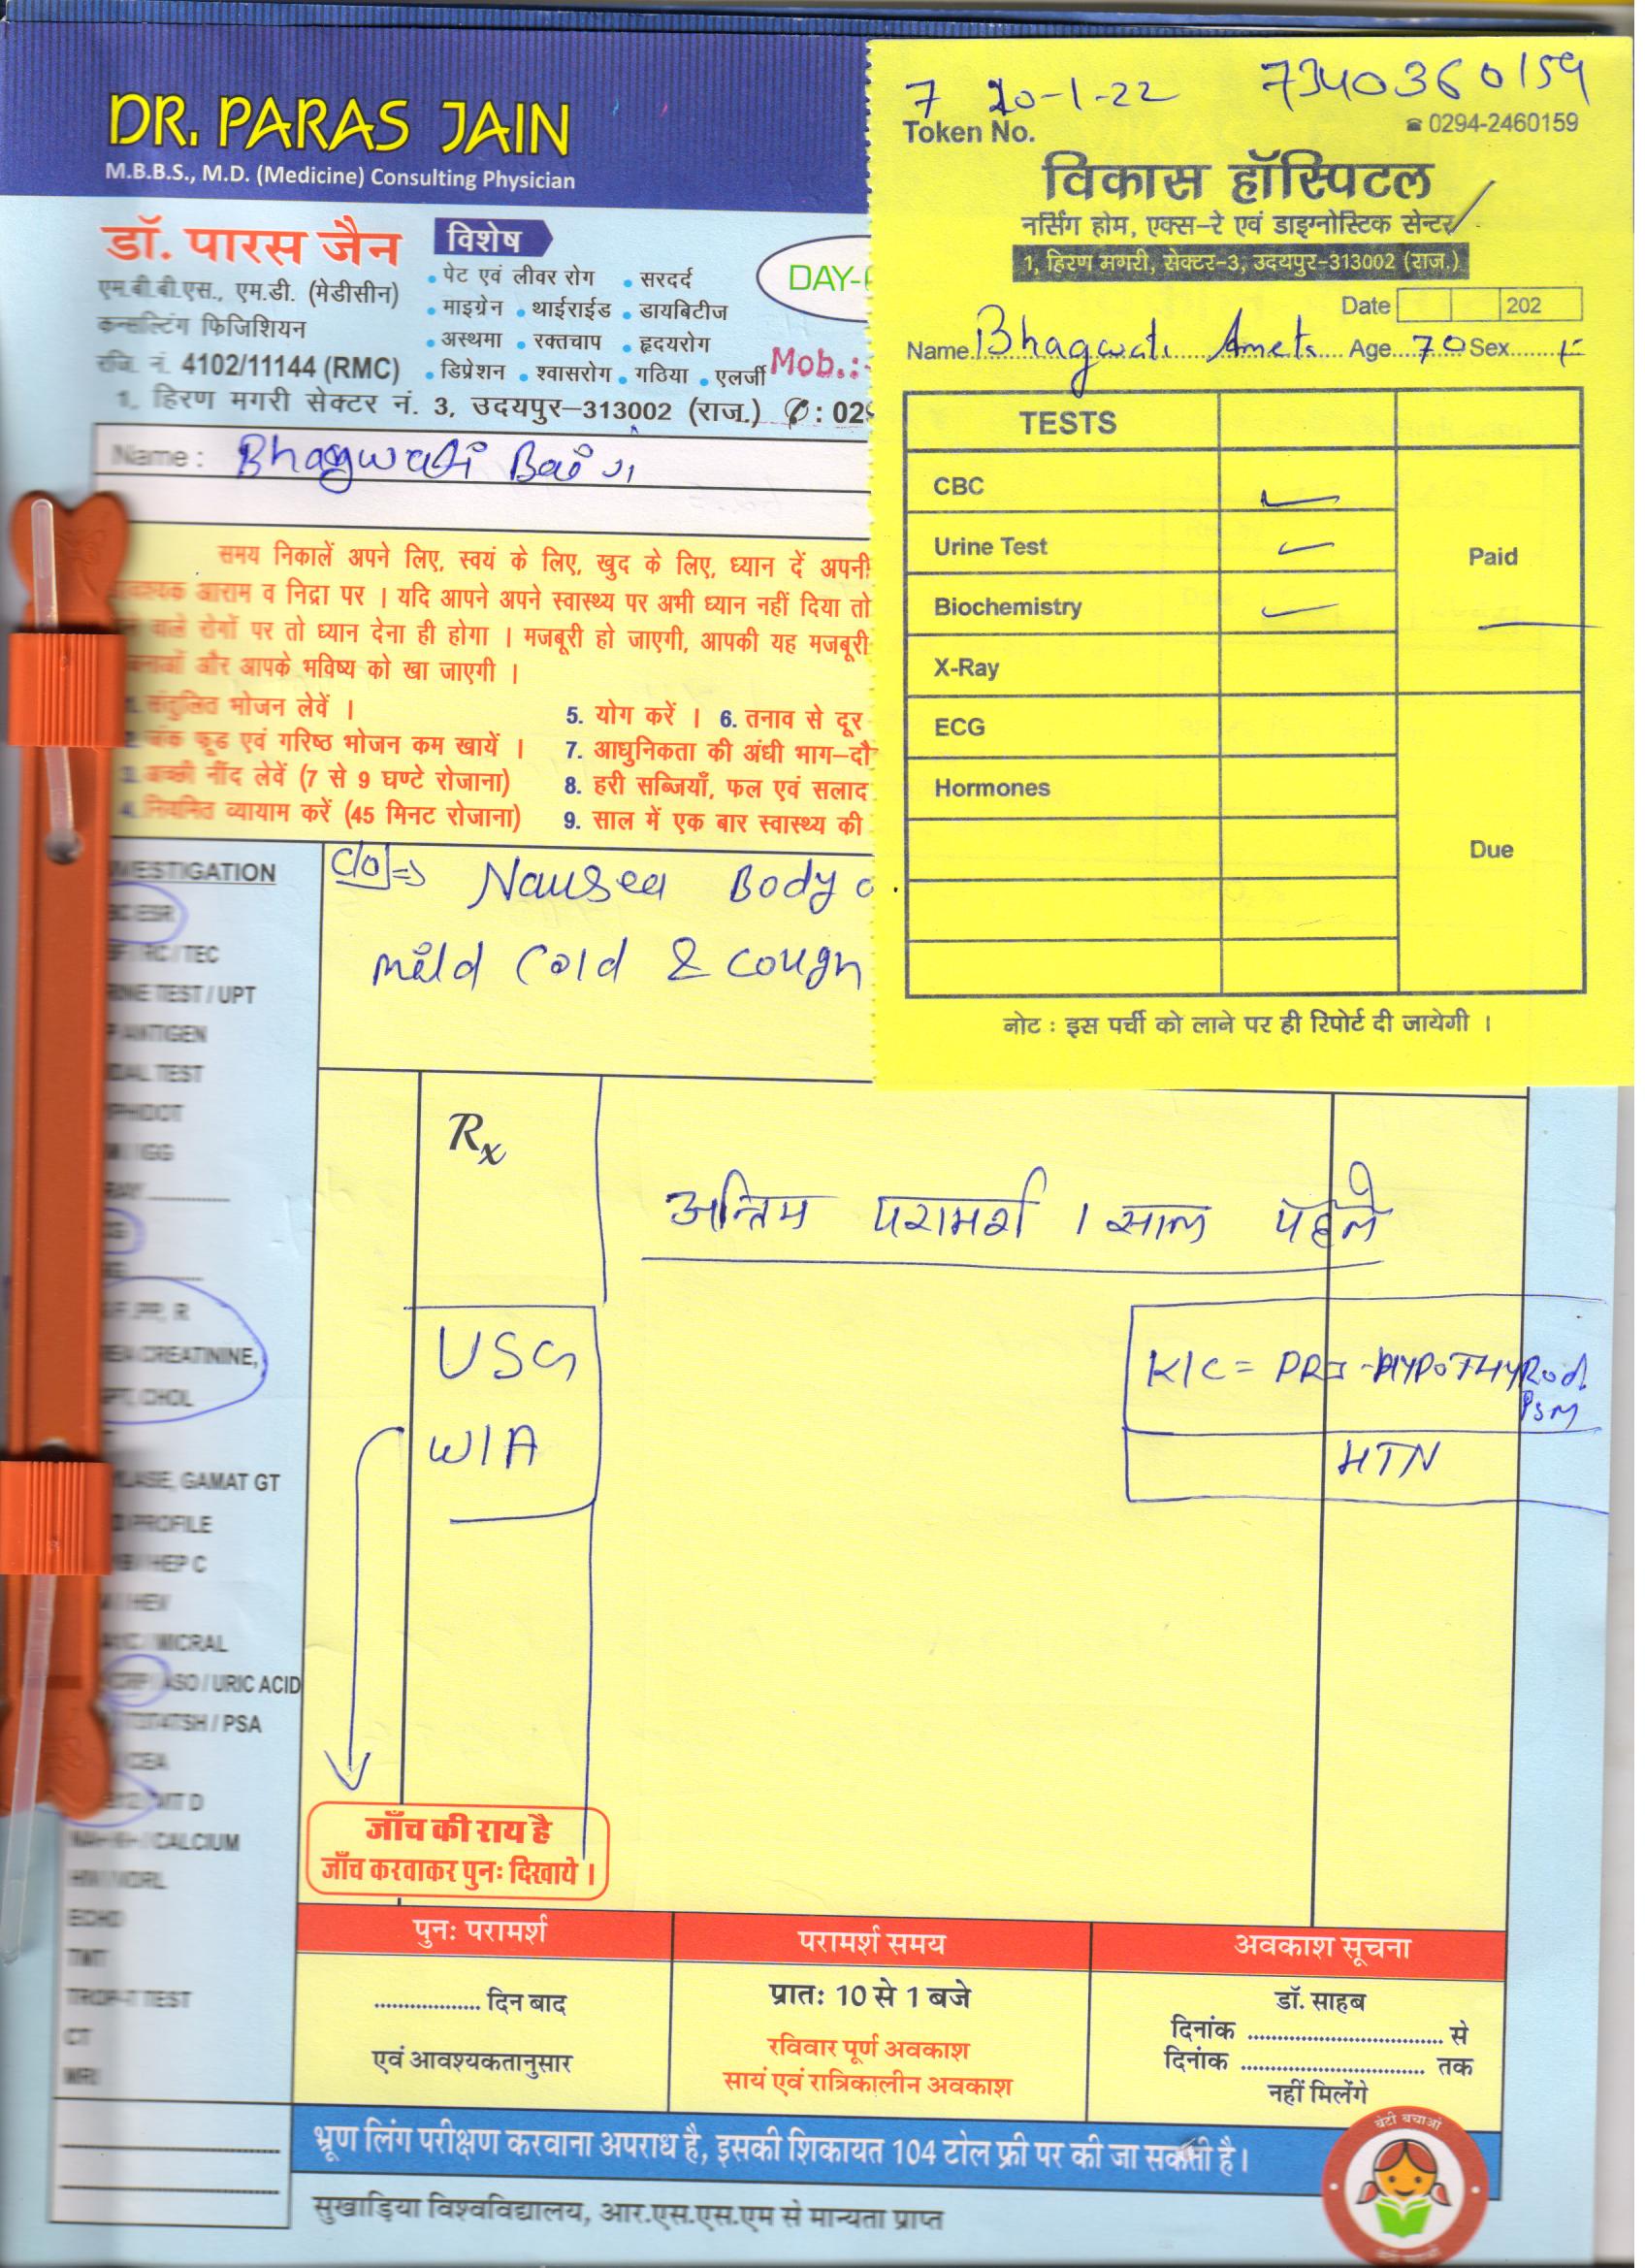 DR. PARAS JAIN
M.B.B.S., M.D. (Medicine) Consulting Physician
डॉ. पारस जैन
एम.बी.बी.एस., एम.डी. (मेडीसीन)
कन्सल्टिंग फिजिशियन
रजि. नं. 4102/11144 (RMC)
विशेष
• पेट एवं लीवर रोग • सरदर्द
• माइग्रेन • थाईराईड • डायबिटीज
• अस्थमा • रक्तचाप • हृदयरोग
• डिप्रेशन • श्वासरोग • गठिया • एलर्जी
DAY-
Mob.:-
1, हिरण मगरी सेक्टर नं. 3, उदयपुर-313002 (राज.) ✆: 029
Name: Bhagwati Bai
समय निकालें अपने लिए, स्वयं के लिए, खुद के लिए, ध्यान दें अपनी
आवश्यक आराम व निद्रा पर । यदि आपने अपने स्वास्थ्य पर अभी ध्यान नहीं दिया तो
वाले रोगों पर तो ध्यान देना ही होगा । मजबूरी हो जाएगी, आपकी यह मजबूरी
और आपके भविष्य को खा जाएगी ।
1. संतुलित भोजन लेवें ।
2. जंक फूड एवं गरिष्ठ भोजन कम खायें ।
3. अच्छी नींद लेवें (7 से 9 घण्टे रोजाना)
4. नियमित व्यायाम करें (45 मिनट रोजाना)
5. योग करें । 6. तनाव से दूर
7. आधुनिकता की अंधी भाग-दौ
8. हरी सब्जियाँ, फल एवं सलाद
9. साल में एक बार स्वास्थ्य की
7 20-1-22 7340360159
Token No. ☎ 0294-2460159
विकास हॉस्पिटल
नर्सिंग होम, एक्स-रे एवं डाइग्नोस्टिक सेन्टर
1, हिरण मगरी, सेक्टर-3, उदयपुर-313002 (राज.)
Date 202
Name Bhagwati Ameta Age 70 Sex F
TESTS
CBC
Urine Test
Biochemistry
X-Ray
ECG
Hormones
Paid
Due
नोट : इस पर्ची को लाने पर ही रिपोर्ट दी जायेगी ।
C/O => Nausea Body
mild Cold & cough
INVESTIGATION
ESR
/ TEC
URINE TEST / UPT
ANTIGEN
WIDAL TEST
TYPHIDOT
/ IGG
PP, R
CREATININE,
CHOL
AMYLASE, GAMAT GT
PROFILE
/ HEP C
/ HEV
/ MICRAL
CRP / ASO / URIC ACID
T3T4TSH / PSA
CEA
B12 / VIT D
CALCIUM
HIV / VDRL
ECHO
TMT
TROP-T TEST
CT
MRI
Rx
अन्तिम परामर्श 1 साल पहले
USG
W/A
K/C =
HTN
जाँच की राय है
जाँच करवाकर पुनः दिखाये ।
पुनः परामर्श
दिन बाद
एवं आवश्यकतानुसार
परामर्श समय
प्रातः 10 से 1 बजे
रविवार पूर्ण अवकाश
सायं एवं रात्रिकालीन अवकाश
अवकाश सूचना
डॉ. साहब
दिनांक से
दिनांक तक
नहीं मिलेंगे
भ्रूण लिंग परीक्षण करवाना अपराध है, इसकी शिकायत 104 टोल फ्री पर की जा सकती है।
सुखाड़िया विश्वविद्यालय, आर.एस.एस.एम से मान्यता प्राप्त
बेटी बचाओ